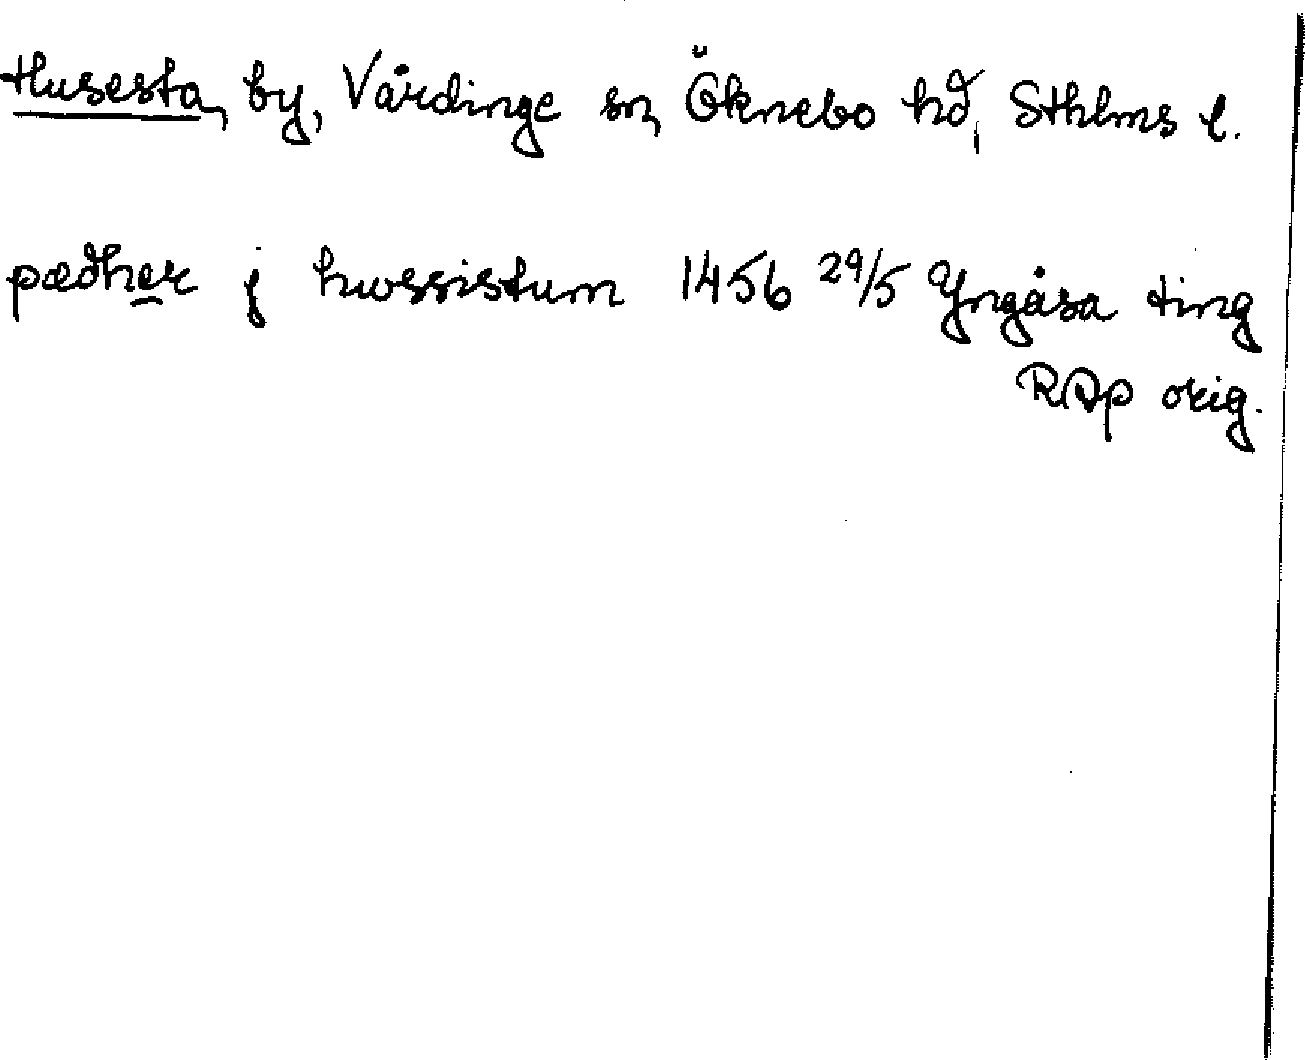 Husesta, by, Vårdinge sn, Öknebo hd, Sthlms l.
pædher j hwssistum 1456 29/5 Yngåsa ting
RAp orig.